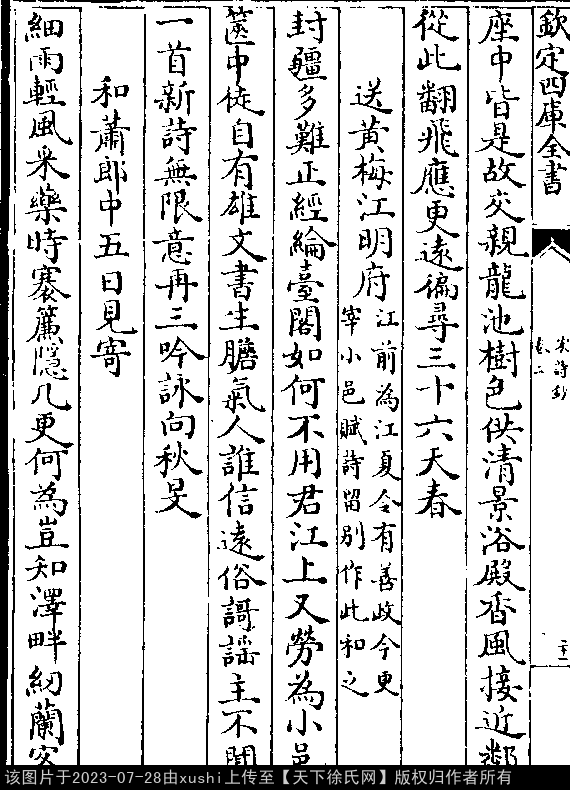 欽定四庫全書
宋詩鈔
卷二
二十二
座中皆是故交親龍池樹色供清景浴殿香風接近鄰
從此翻飛應更遠徧尋三十六天春
送黃梅江明府
江前為江夏令有善政今更
宰小邑賦詩留別作此和之
封疆多難正經綸臺閣如何不用君江上又勞為小邑
篋中徒自有雄文書生膽氣人誰信遠俗謌謡主不聞
一首新詩無限意再三吟詠向秋旻
和蕭郎中五日見寄
細雨輕風采藥時褰簾隱几更何為豈知澤畔紉蘭客
该图片于2023-07-28由xushi上传至【天下徐氏网】版权归作者所有